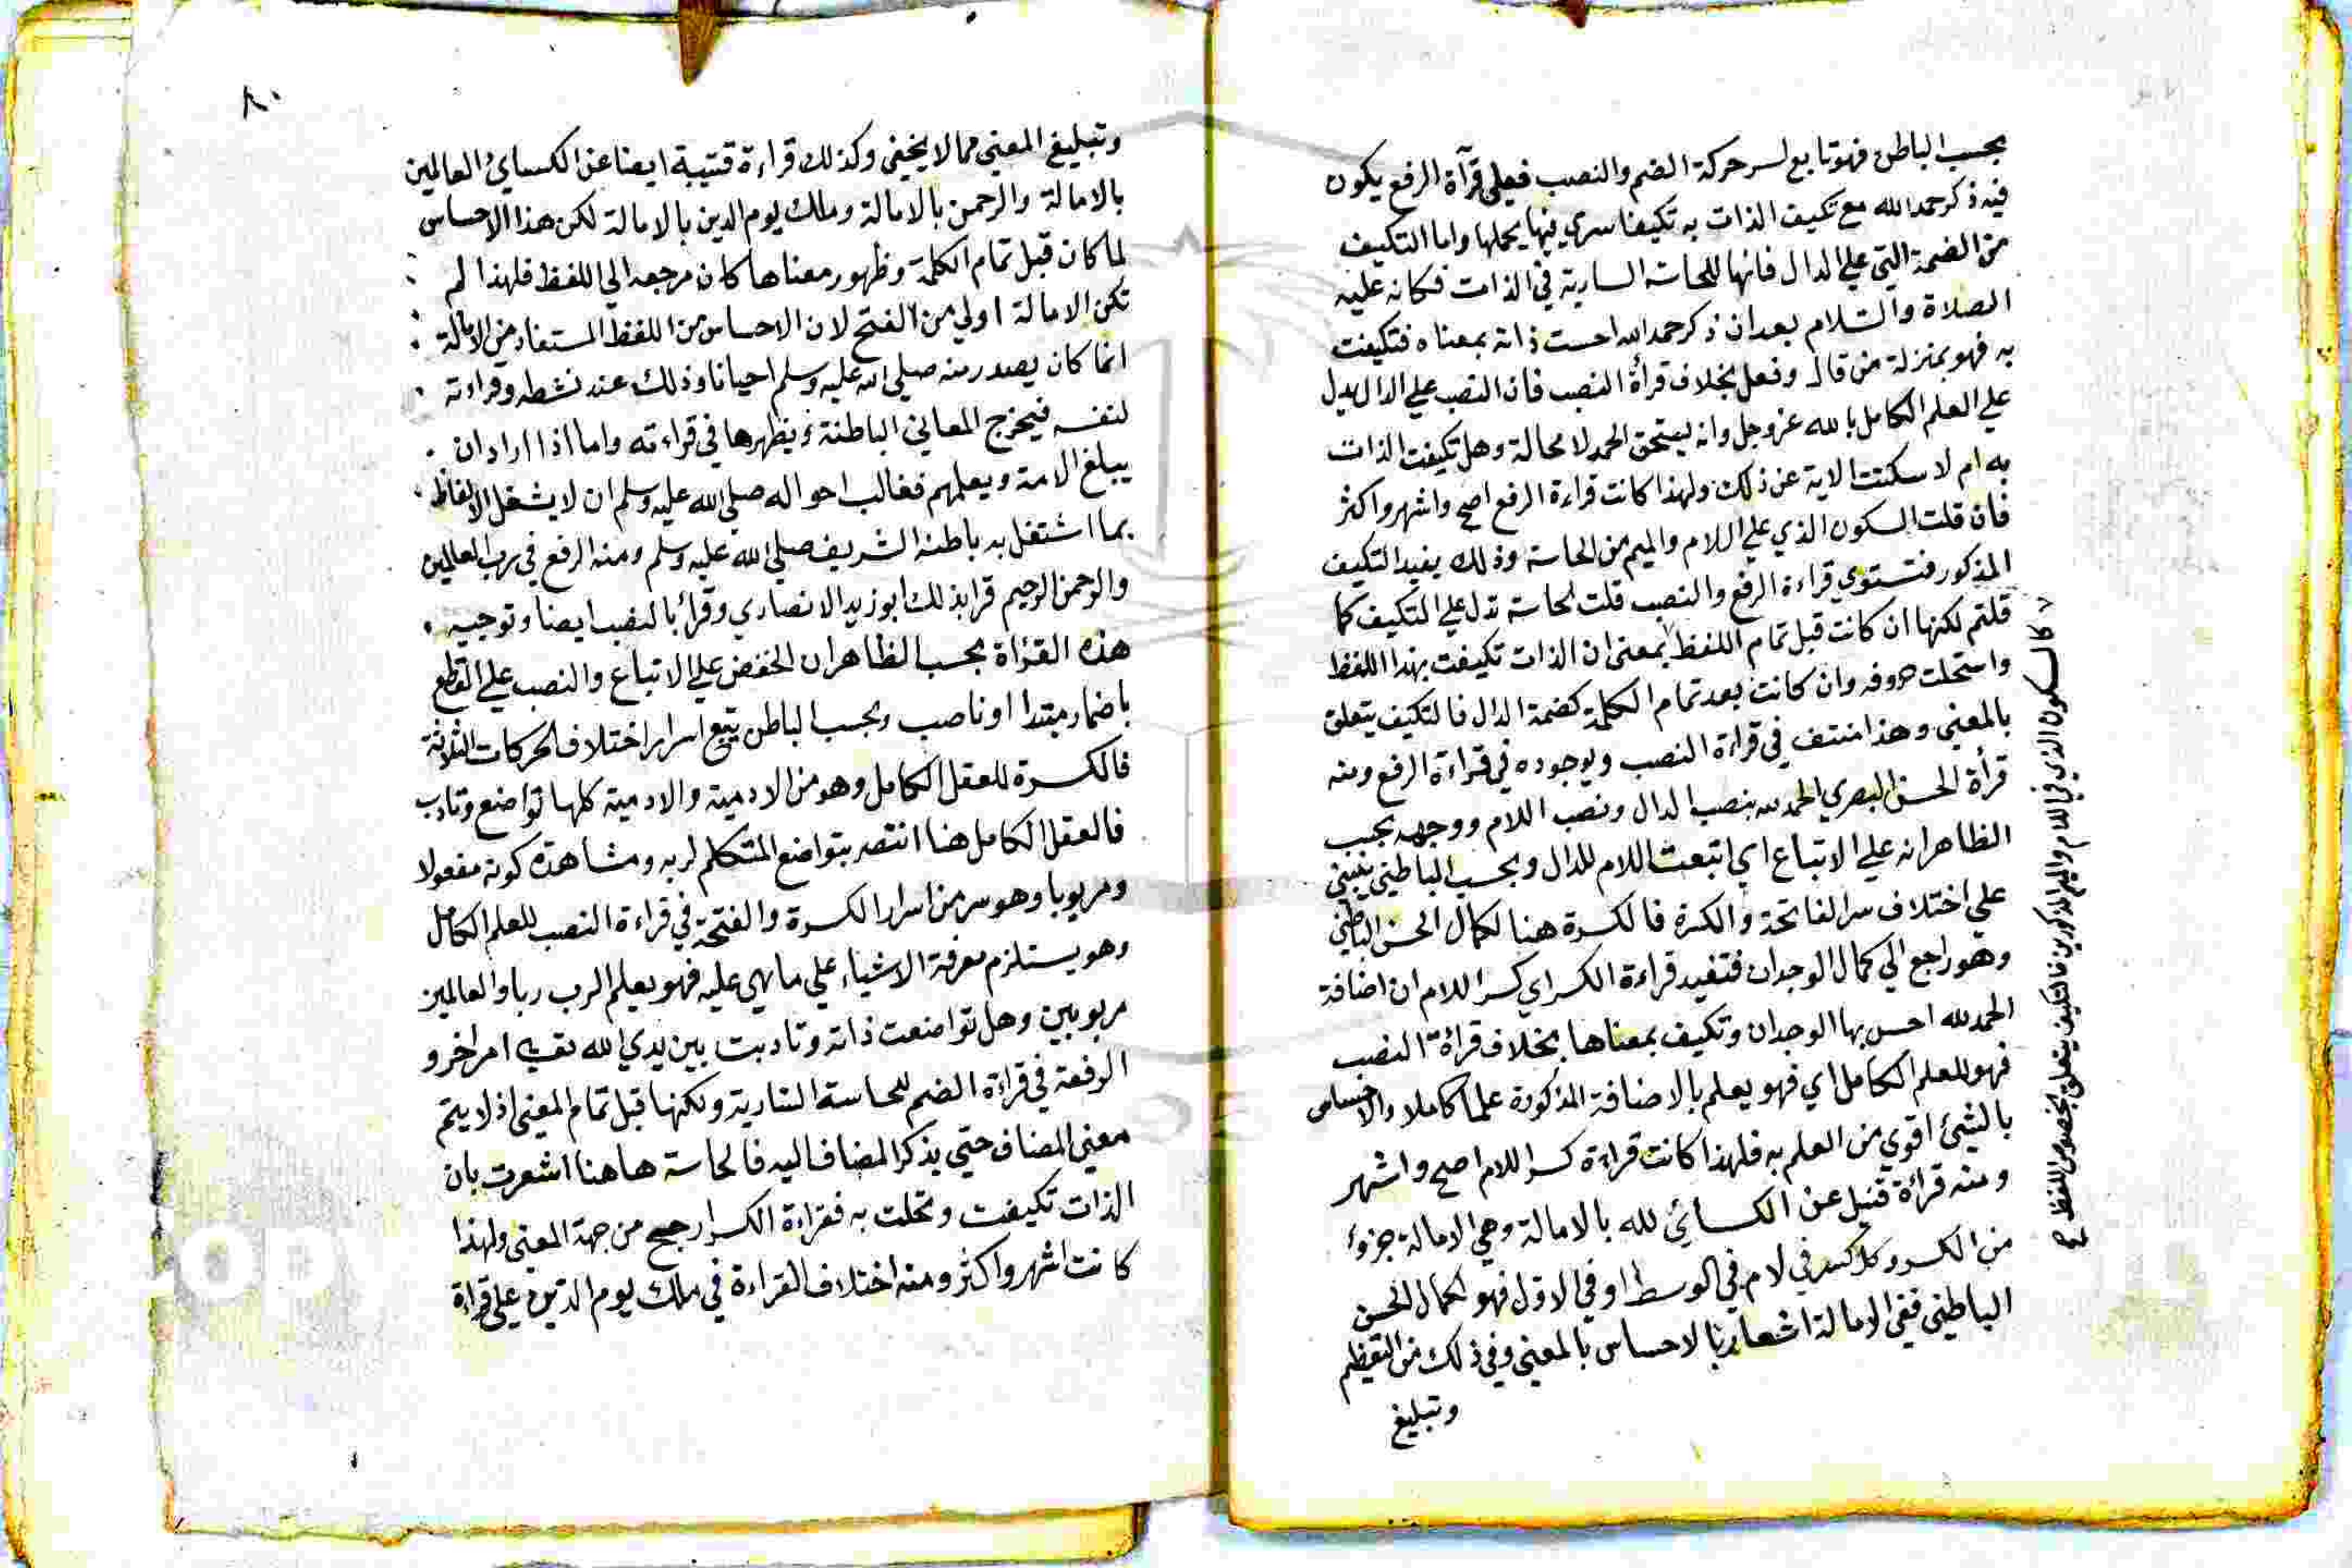 بحسب الباطن فهو تابع لسر حركة الضم والنصب فعلى قرآة الرفع يكون
فيه ذكر حمد الله مع تكيف الذات به تكيفا سري فيها بحملها واما التكيف
من الضمة التي علي الدال فانها للحاسة السارية في الذات فكانه عليه
الصلاة والسلام بعد ان ذكر حمد الله احست ذاته بمعناه فتكيفت
به فهو بمنزلة من قال وفعل بخلاف قرأة النصب فان النصب علي الدال يدل
علي العلم الكامل بالله عز وجل وانه يستحق الحمد لا محالة وهل تكيفت الذات
به ام لا سكتت الاية عن ذلك ولهذا كانت قراءة الرفع اصح واشهر واكثر
فان قلت السكون الذي علي اللام والميم من الحاسة وذلك يفيد التكيف
المذكور فتستوي قراءة الرفع والنصب قلت الحاسة تدل علي التكيف كما
قلتم لكنها ان كانت قبل تمام اللفظ بمعنى ان الذات تكيفت بهذا اللفظ
واستحلت حروفه وان كانت بعد تمام الكلمة كضمة الدال فالتكيف يتعلق
بالمعني وهذا منتف في قراءة النصب وبوجوده في قراءة الرفع ومنه
قرأة الحسن البصري الحمد لله بنصب الدال ونصب اللام ووجهه بحسب
الظاهر انه علي الاتباع اي اتبعت اللام للدال وبحسب الباطني ينبني
علي اختلاف سر الفاتحة والكسرة فالكسرة هنا لكمال الحسن الباطني
وهو راجع الي كمال الوجدان فتفيد قراءة الكسر اي كسر اللام ان اضافة
الحمد لله احس بها الوجدان وتكيف بمعناها بخلاف قرأة النصب
فهو للعلم الكامل اي فهو يعلم بالاضافة المذكورة علما كاملا والاحساس
بالشئ اقوي من العلم به فلهذا كانت قراءة كسر اللام اصح واشهر
ومنه قراءة قتيبة عن الكسائي لله بالامالة وهي الامالة جزؤ
من الكسر وكل كسر في لام في الوسط او في الاول فهو لكمال الحسن
الباطني ففي الامالة اشعار بالاحساس بالمعني وفي ذلك من التعظيم
وتبليغ
كالسكون الذي في اللام والميم المذكورين فالتكيف يتعلق بخصوص اللفظ صح
٨٠
وتبليغ المعني مما لا يخفي وكذلك قراءة قتيبة ايضا عن الكسائ العالمين
بالامالة والرحمن بالامالة وملك يوم الدين بالامالة لكن هذا الاحساس
لما كان قبل تمام الكلمة وظهور معناها كان مرجعه الي اللفظ فلهذا لم
تكن الامالة اولي من الفتح لان الاحساس من اللفظ المستفاد من الامالة
انما كان يصدر منه صلي الله عليه وسلم احيانا وذلك عند نشطه وقراءته
لنفسه فيخرج المعاني الباطنة ويظهرها في قراءته واما اذا اراد ان
يبلغ الامة ويعلمهم فغالب احواله صلي الله عليه وسلم ان لا يشغل الالفاظ
بما اشتغل به باطنه الشريف صلي الله عليه وسلم ومنه الرفع في رب العالمين
والرحمن الرحيم قرا بذلك ابو زيد الانصاري وقرأ بالنصب ايضا وتوجيه
هذه القرأة بحسب الظاهر ان الخفض علي الاتباع والنصب علي القطع
باضمار مبتدا او ناصب وبحسب الباطن يتبع اسرار اختلاف الحركات الثلاثة
فالكسرة للعقل الكامل وهو من الادمية والادمية كلها تواضع وتادب
فالعقل الكامل هنا انتصر بتواضع المتكلم لربه ومشاهدة كونه مفعولا
ومربوبا وهو سر من اسرار الكسرة والفتحة في قراءة النصب للعلم الكامل
وهو يستلزم معرفة الاشياء علي ما هي عليه فهو يعلم الرب ربا والعالمين
مربوبين وهل تواضعت ذاته وتادبت بين يدي الله تعالي امر اخر و
الرفعة في قراءة الضم للحاسة السارية ولكنها قبل تمام المعني اذ لا يتم
معني المضاف حتي يذكر المضاف اليه فالحاسة هاهنا اشعرت بان
الذات تكيفت وتحلت به فقراءة الكسر ارجح من جهة المعني ولهذا
كانت اشهر واكثر ومنه اختلاف القراءة في ملك يوم الدين علي قراءة